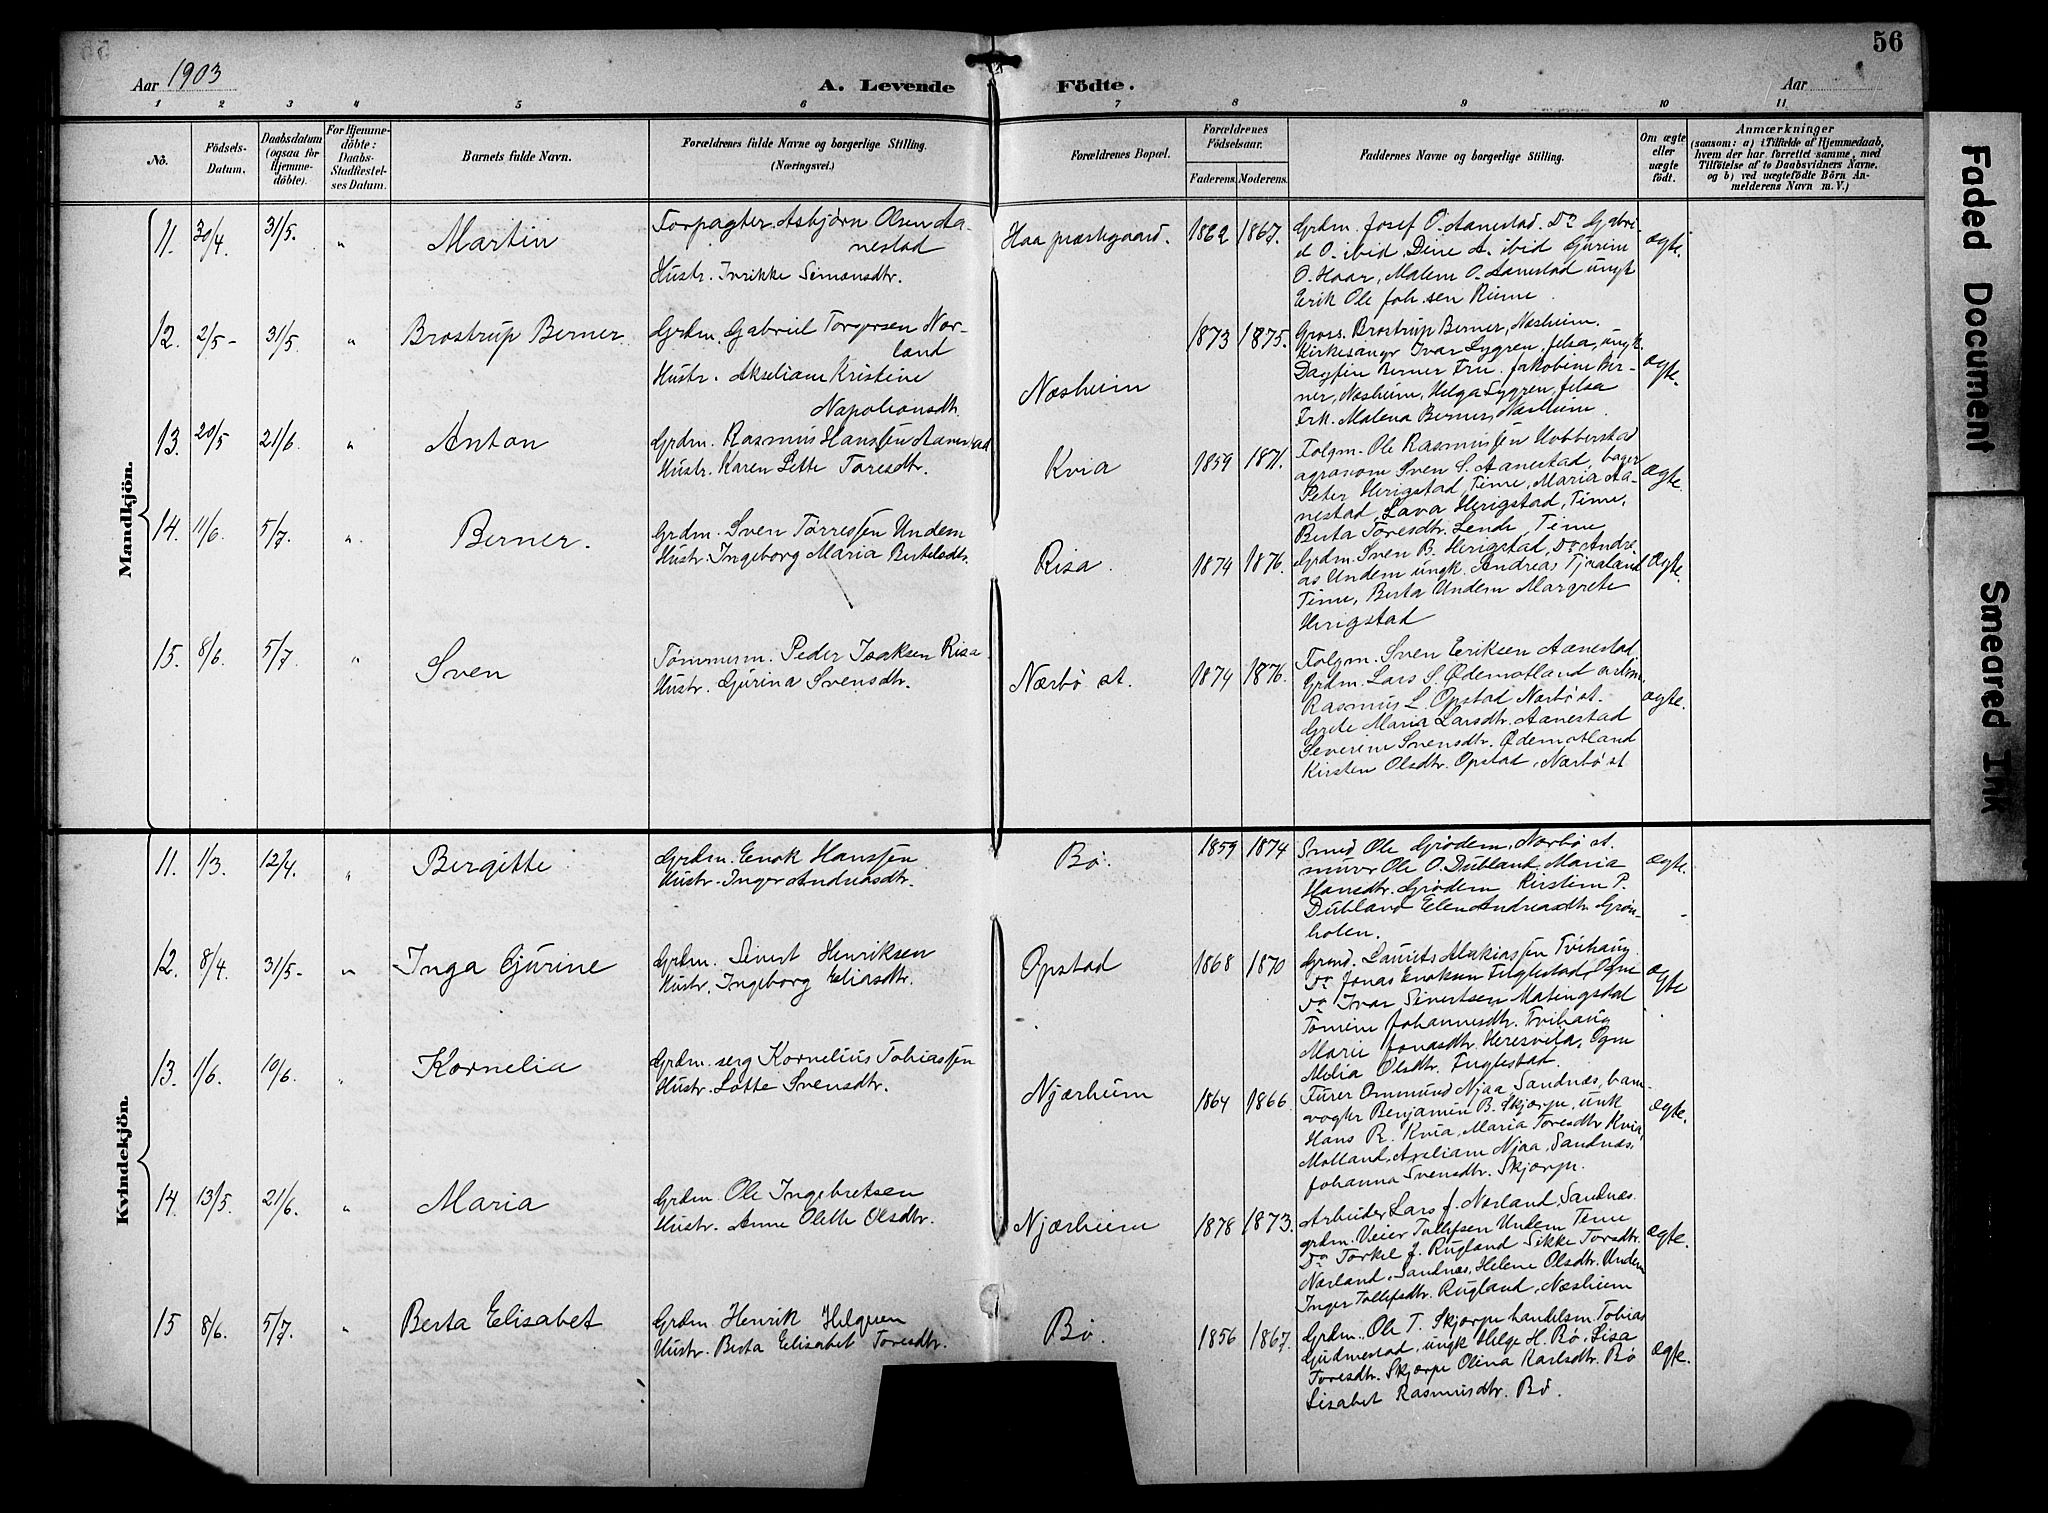 56
Aar 1903
A. Levende Födte.
Aar
1 2 3 4 5 6 7 8 9 10 11
No.
Födsels-Datum.
Daabsdatum (ogsaa for Hjemme-döbte).
For Hjemme-döbte: Daabs-Stadfæstel-ses Datum.
Barnets fulde Navn.
Forældrenes fulde Navne og borgerlige Stilling. (Næringsvei.)
Forældrenes Bopæl.
Forældrenes Födselsaar.
Faderens. Moderens.
Faddernes Navne og borgerlige Stilling.
Om ægte eller uægte födt.
Anmærkninger
(saasom: a) i Tilfælde af Hjemmedaab, hvem der har forrettet samme, med Tilföielse af to Daabsvidners Navne. og b) ved uægtefödte Börn An-melderens Navn m. V.)
Mandkjön.
11. 30/4. 31/5. " Martin
Forpagter Asbjörn Olsen Aa-
nestad
Hustr. Inrikke Simonsdtr.
Haa præstegaard. 1862 1867.
Grdm. Josef O. Aanestad. Do Gabri-
el O. ibid, Dine A. ibid Gjurine
O. Haar, Malene O. Aanestad ungk
Erik Ole Joh.sen Rime.
ægte.
12. 2/5- 31/5. " Brostrup Berner
Grdm. Gabriel Torgersen Nor-
land
Hustr. Akseliane Kristine
Napoleonsdtr.
Næsheim 1873 1875.
Gross. Brostrup Berner, Næsheim.
Kirkesangr Ivar Lygren, felsa, ungk.
Dagfin Berner Fru. Jakobine Ber-
ner, Næsheim, Helga Lygren, felsa
Frk. Malena Berner, Næsheim.
ægte.
13. 20/5 21/6 " Anton
Grdm. Rasmus Hanssen Aanestad
Hustr. Karen Lotte Toresdtr.
Kvia 1859 1871.
Folgm. Ole Rasmussen Hobberstad
agronom Sven S. Aanestad, bager
Peter Herigstad, Time, Maria Aa-
nestad, Lava Herigstad, Time,
Berta Toresdtr. Lende, Time
ægte.
14. 11/6. 5/7. " Berner.
Grdm. Sven Tørressen Undem
Hustr. Ingeborg Maria Bertelsdtr.
Risa. 1874 1876.
Grdm. Sven B. Herigstad, Do Andre-
as Undem ungk. Andreas Tjaaland
Time, Berta Undem Margrete
Herigstad
Ægte.
15. 8/6. 5/7 " Sven
Tømmerm. Peder Isaksen Risa.
Hustr. Gjurina Svensdtr.
Nærbø st. 1874 1876.
Folgm. Sven Eriksen Aanestad
Grdm. Lars S. Ødemotland arbm.
Rasmus L. Opstad Nærbø st.
Grete Maria Larsdtr. Aanestad
Severine Svensdtr. Ødemotland
Kirsten Olsdtr. Opstad, Nærbø st
ægte.
Kvindekjön.
11. 1/3. 12/4. " Bergitte
Grdm. Enok Hanssen
Hustr. Inger Andreasdtr.
Bø. 1859 1874
Smed Ole Grødem, Nærbø st.
murer Ole O. Dubland, Maria
Hansdtr. Grødem Kirstine P.
Dubland Elen Andreasdtr. Grøn-
holen.
ægte.
12. 8/4. 31/5- " Inga Gjurine
Grdm. Sivert Henriksen
Hustr. Ingeborg Eliasdtr.
Opstad 1868 1870
Grmd. Laurits Malkiassen Tvihaug
Do Jonas Enoksen Fuglestad, Ogne
Do Ivar Sivertsen Matingsdal
Tomine Johannesdtr. Tvihaug
Marie Jonasdtr. Heresvela, Ogne
Melia Olsdtr. Fuglestad.
ægte
13. 1/6. 10/6. " Kornelia
Grdm. serg Kornelius Tobiassen
Hustr. Lotte Svensdtr.
Njærheim 1864 1866.
Furer Ommund Njaa, Sandnæs, ban-
vogter Benjamin B. Skjærpe, unk
Hans R. Kvia, Maria Toresdtr Kvia,
Motland, Axeliane Njaa, Sandnæs,
Johanna Svensdtr. Skjærpe.
ægte.
14. 13/5. 21/6. " Maria
Grdm. Ole Ingebretsen
Hustr. Anne Olette Olsdtr.
Njærheim 1878 1873.
Arbeider Lars J. Nærland, Sandnæs.
grdm. Veier Tollefsen Undem Time
Do Torkel J. Rugland Sikke Toresdtr.
Nærland, Sandnæs, Helene Olsdtr. Undem
Inger Tollefsdtr. Rugland, Næsheim
ægte.
15 8/6. 5/7. " Berta Elisabet
Grdm. Henrik Helgesen
Hustr. Berta Elisabet Toresdtr.
Bø. 1856 1867.
Grdm. Ole T. Skjærpe handelsm. Tobias
Gudmestad, ungk Helge H. Bø, Lisa
Toresdtr. Skjærpe Olina Karlsdtr. Bø
Lisabet Rasmusdtr. Bø.
ægte.
Faded Document
Smeared Ink